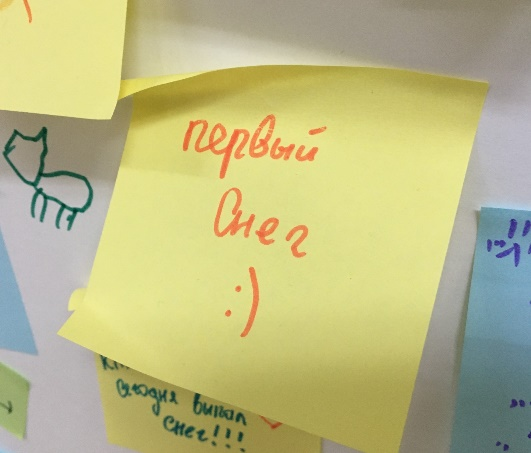 первый
Снег
:)
сегодня выпал
снег!!!